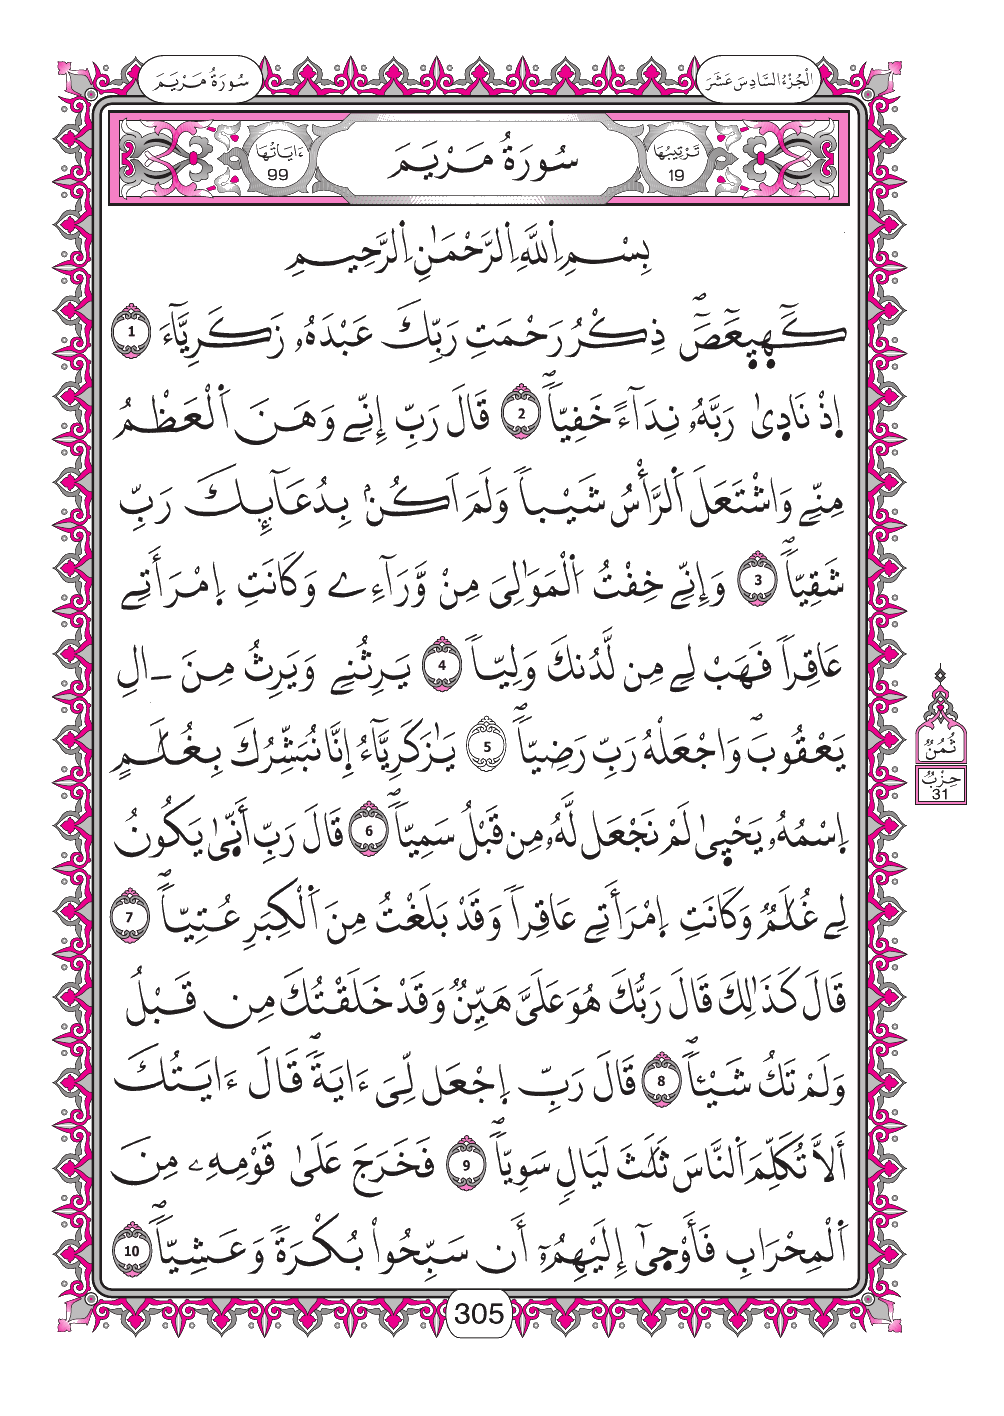 سُورَةُ مَرْيَمَ
اَلْجُزْءُ السَّادِسَ عَشَرَ
تَرْتِيبُهَا 19
سُورَةُ مَرْيَمَ
ءَايَاتُهَا 99
بِسْمِ اِ۬للَّهِ اِ۬لرَّحْمَٰنِ اِ۬لرَّحِيمِ
كَٓهَيَعَٓصَٓۖ ذِكْرُ رَحْمَتِ رَبِّكَ عَبْدَهُۥ زَكَرِيَّآءَ 1
اِذْ نَادَىٰ رَبَّهُۥ نِدَآءً خَفِيّاٗۖ 2 قَالَ رَبِّ إِنِّے وَهَنَ اَ۬لْعَظْمُ
مِنِّے وَاشْتَعَلَ اَ۬لرَّأْسُ شَيْباٗ وَلَمَ اَكُنۢ بِدُعَآئِكَ رَبِّ
شَقِيّاٗۖ 3 وَإِنِّے خِفْتُ اُ۬لْمَوَٰلِيَ مِنْ وَّرَآءِے وَكَانَتِ اِ۪مْرَأَتِے
عَاقِراٗ فَهَبْ لِے مِن لَّدُنكَ وَلِيّاٗ 4 يَرِثُنِے وَيَرِثُ مِنَ ـ اٰلِ
يَعْقُوبَۖ وَاجْعَلْهُ رَبِّ رَضِيّاٗۖ 5 يَٰزَكَرِيَّآءُ اِنَّا نُبَشِّرُكَ بِغُلَٰمٍ
اِ۪سْمُهُۥ يَحْيَىٰ لَمْ نَجْعَل لَّهُۥ مِن قَبْلُ سَمِيّاٗۖ 6 قَالَ رَبِّ أَنَّىٰ يَكُونُ
لِے غُلَٰمٞ وَكَانَتِ اِ۪مْرَأَتِے عَاقِراٗ وَقَدْ بَلَغْتُ مِنَ اَ۬لْكِبَرِ عُتِيّاٗۖ 7
قَالَ كَذَٰلِكَ قَالَ رَبُّكَ هُوَ عَلَيَّ هَيِّنٞ وَقَدْ خَلَقْتُكَ مِن قَبْلُ
وَلَمْ تَكُ شَيْـٔاٗۖ 8 قَالَ رَبِّ اِ۪جْعَل لِّيَ ءَايَةٗۖ قَالَ ءَايَتُكَ
أَلَّا تُكَلِّمَ اَ۬لنَّاسَ ثَلَٰثَ لَيَالٖ سَوِيّاٗۖ 9 فَخَرَجَ عَلَىٰ قَوْمِهِۦ مِنَ
اَ۬لْمِحْرَابِ فَأَوْحَىٰٓ إِلَيْهِمُۥٓ أَن سَبِّحُواْ بُكْرَةٗ وَعَشِيّاٗۖ 10
ثُمُنُ
حِزْبُ
31
305